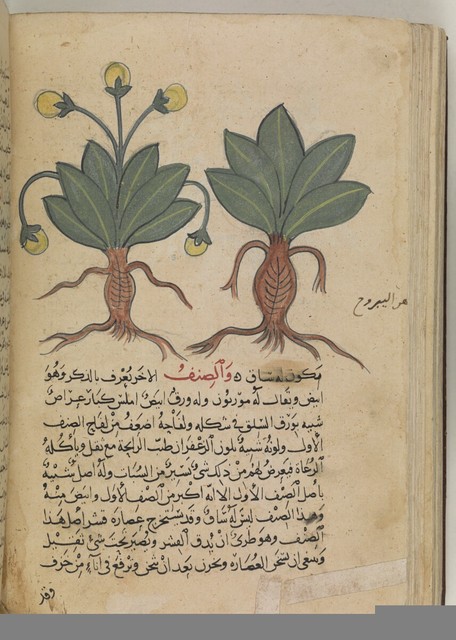 هو اليبروح
يكون له ساق ه والصنف الاخر يعرف بالذكر وهو
ابيض ويقال له موريون وله ورق ابيض املس كبار عراض
شبيه بورق السلق في شكله ولفاحه اضعف من لفاح الصنف
الاول ولونه شبيه بلون الزعفران طيب الرايحة مع ثقل وياكله
الرعاة فيعرض لهم من ذلك شي يسير من السبات وله اصل شبيه
باصل الصنف الاول الا انه اكبر من الصنف الاول وابيض منه
وهذا الصنف ليس له ساق وقد يستخرج عصاره قشر اصل هذا
الصنف وهو طري ان يدق القشر ويصير تحت شي ثقيل
وينبغي ان يسخن العصاره ويخزن بعد ان يثخن ويرفع في اناء من خزف
وقد